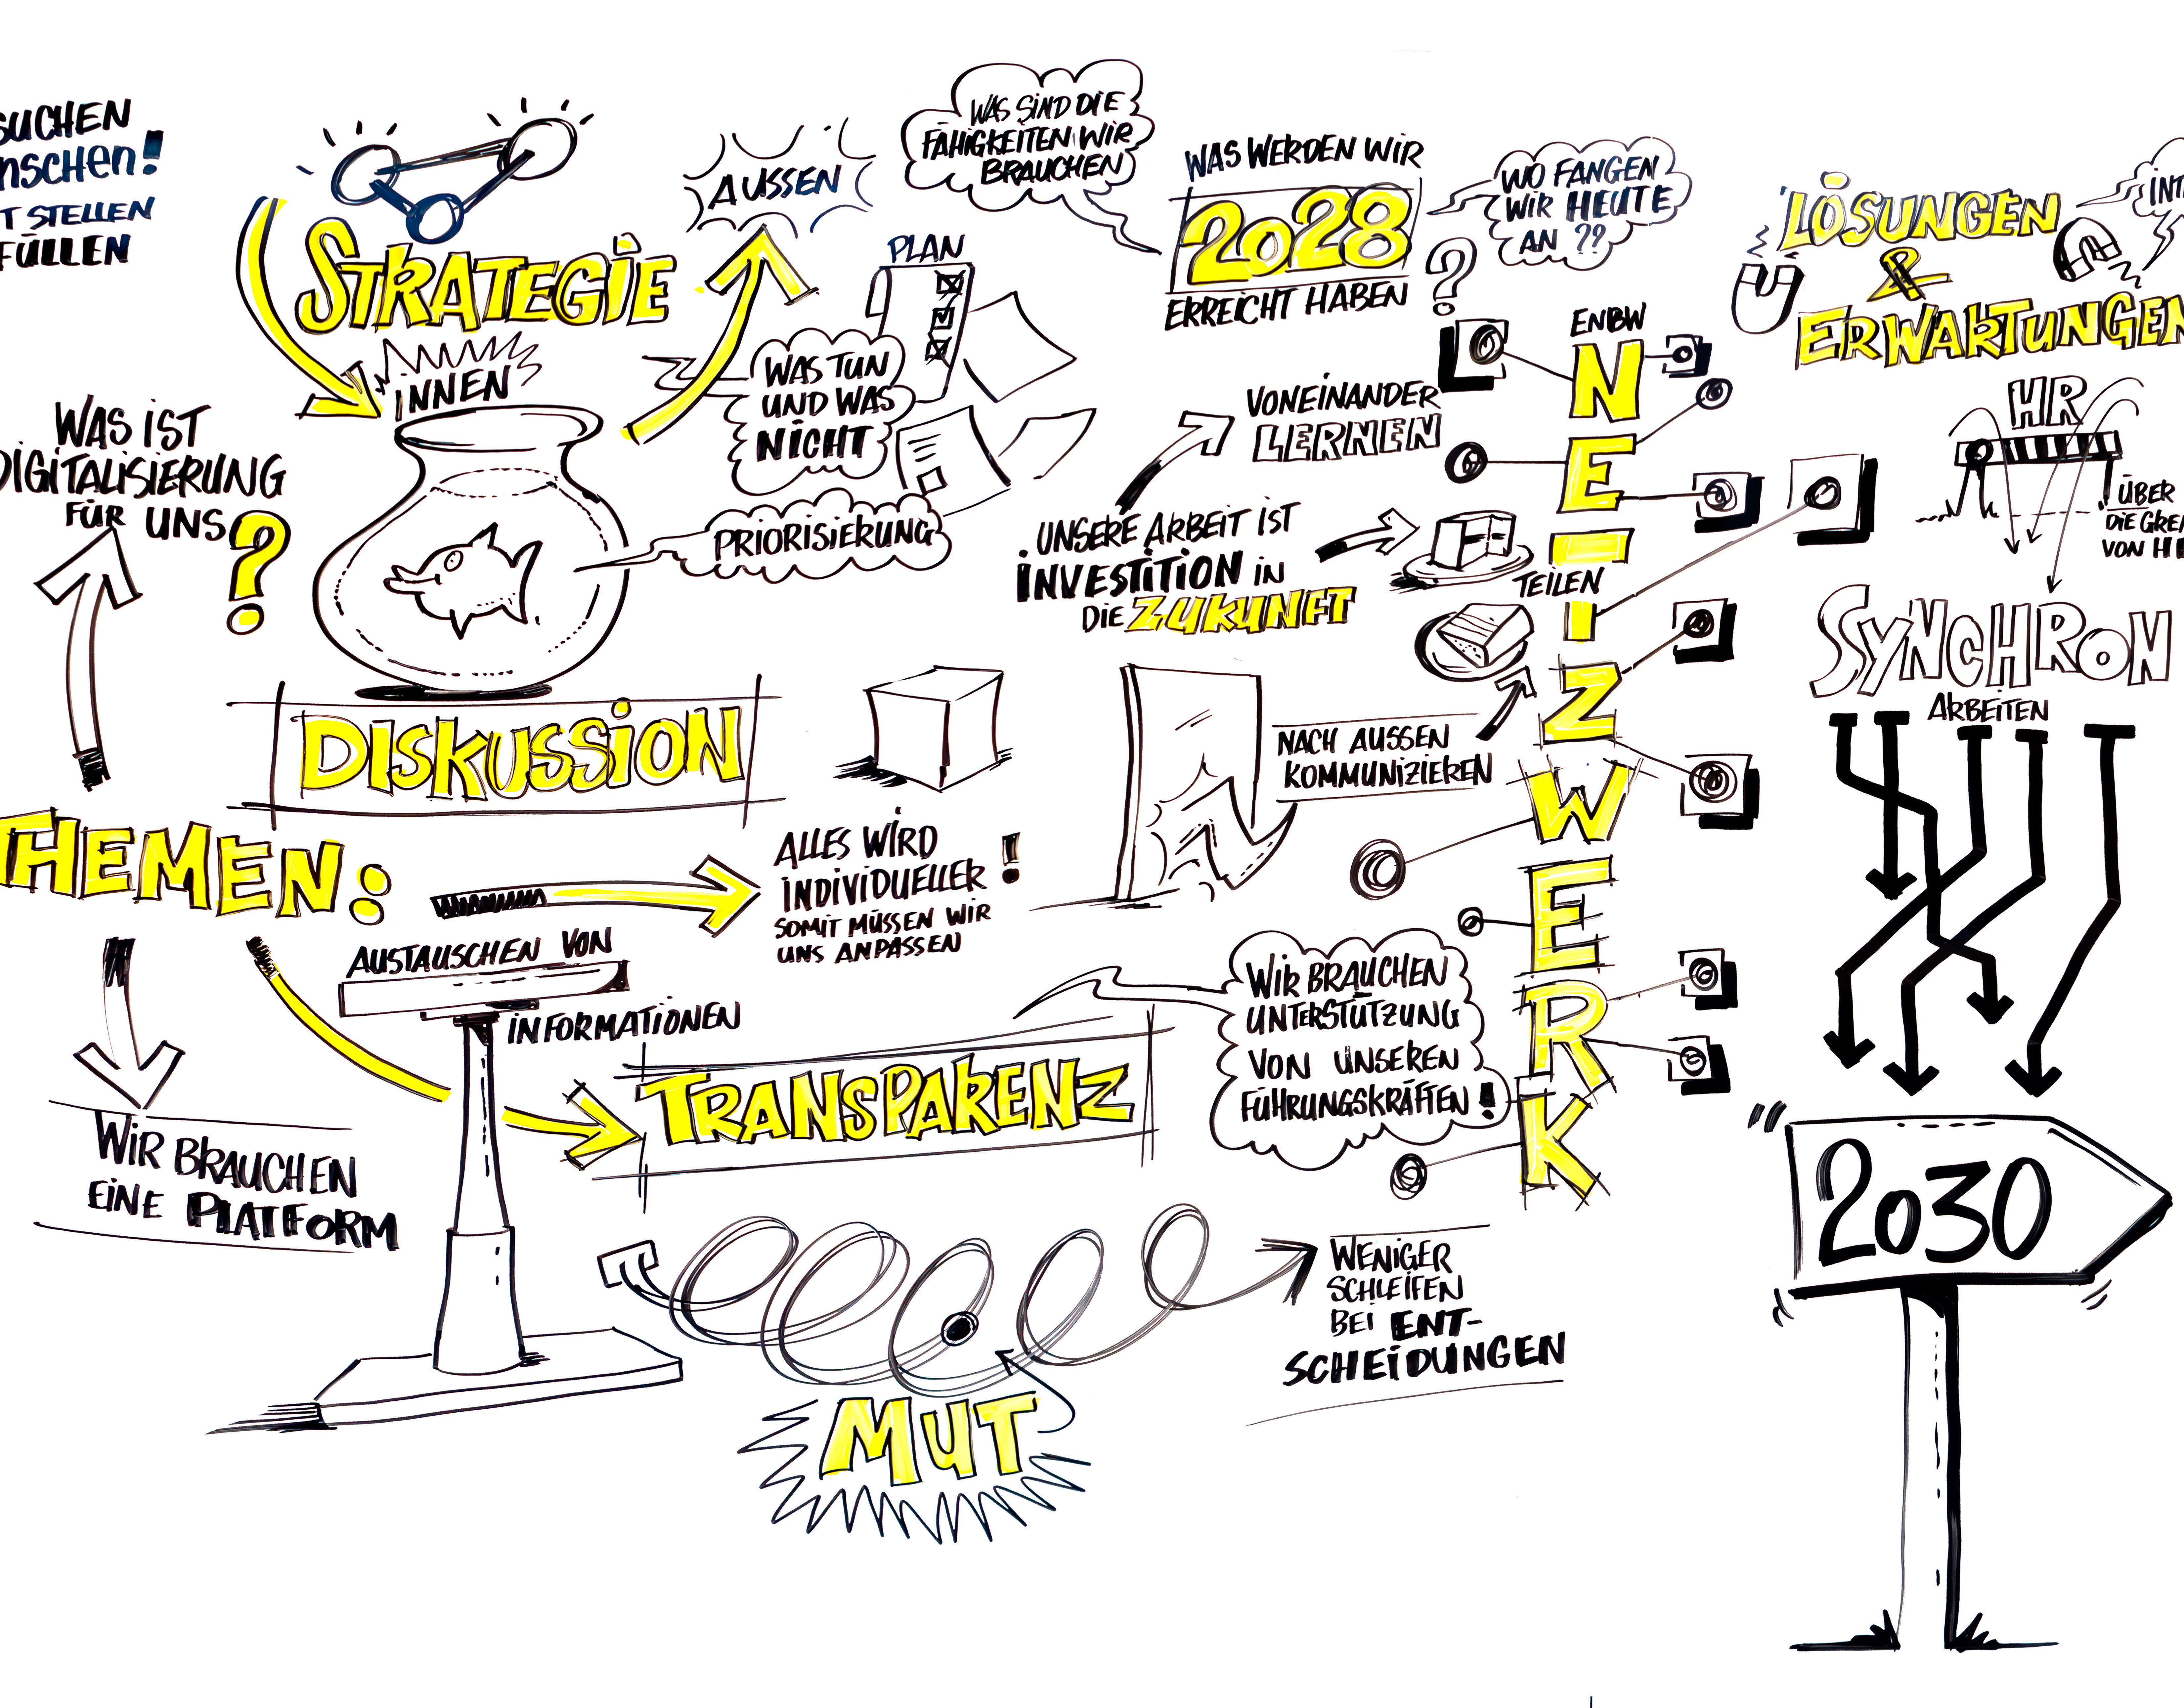 SUCHEN
NSCHEN!
T STELLEN
FÜLLEN
STRATEGIE
INNEN
AUSSEN
PLAN
WAS TUN
UND WAS
NICHT
PRIORISIERUNG
WAS SIND DIE
FÄHIGKEITEN WIR
BRAUCHEN
WAS WERDEN WIR
2028
ERREICHT HABEN
?
WO FANGEN
WIR HEUTE
AN ??
WAS IST
DIGITALISIERUNG
FÜR UNS
?
DISKUSSION
THEMEN:
VONEINANDER
LERNEN
UNSERE ARBEIT IST
INVESTITION IN
DIE ZUKUNFT
TEILEN
NACH AUSSEN
KOMMUNIZIEREN
ENBW
NETZWERK
ALLES WIRD
INDIVIDUELLER !
SOMIT MÜSSEN WIR
UNS ANPASSEN
AUSTAUSCHEN VON
INFORMATIONEN
TRANSPARENZ
WIR BRAUCHEN
UNTERSTÜTZUNG
VON UNSEREN
FÜHRUNGSKRÄFTEN!
WIR BRAUCHEN
EINE PLATFORM
WENIGER
SCHLEIFEN
BEI ENT-
SCHEIDUNGEN
MUT
LÖSUNGEN
&
ERWARTUNGEN
INT
HR
ÜBER
DIE GRE
VON HR
SYNCHRON
ARBEITEN
2030